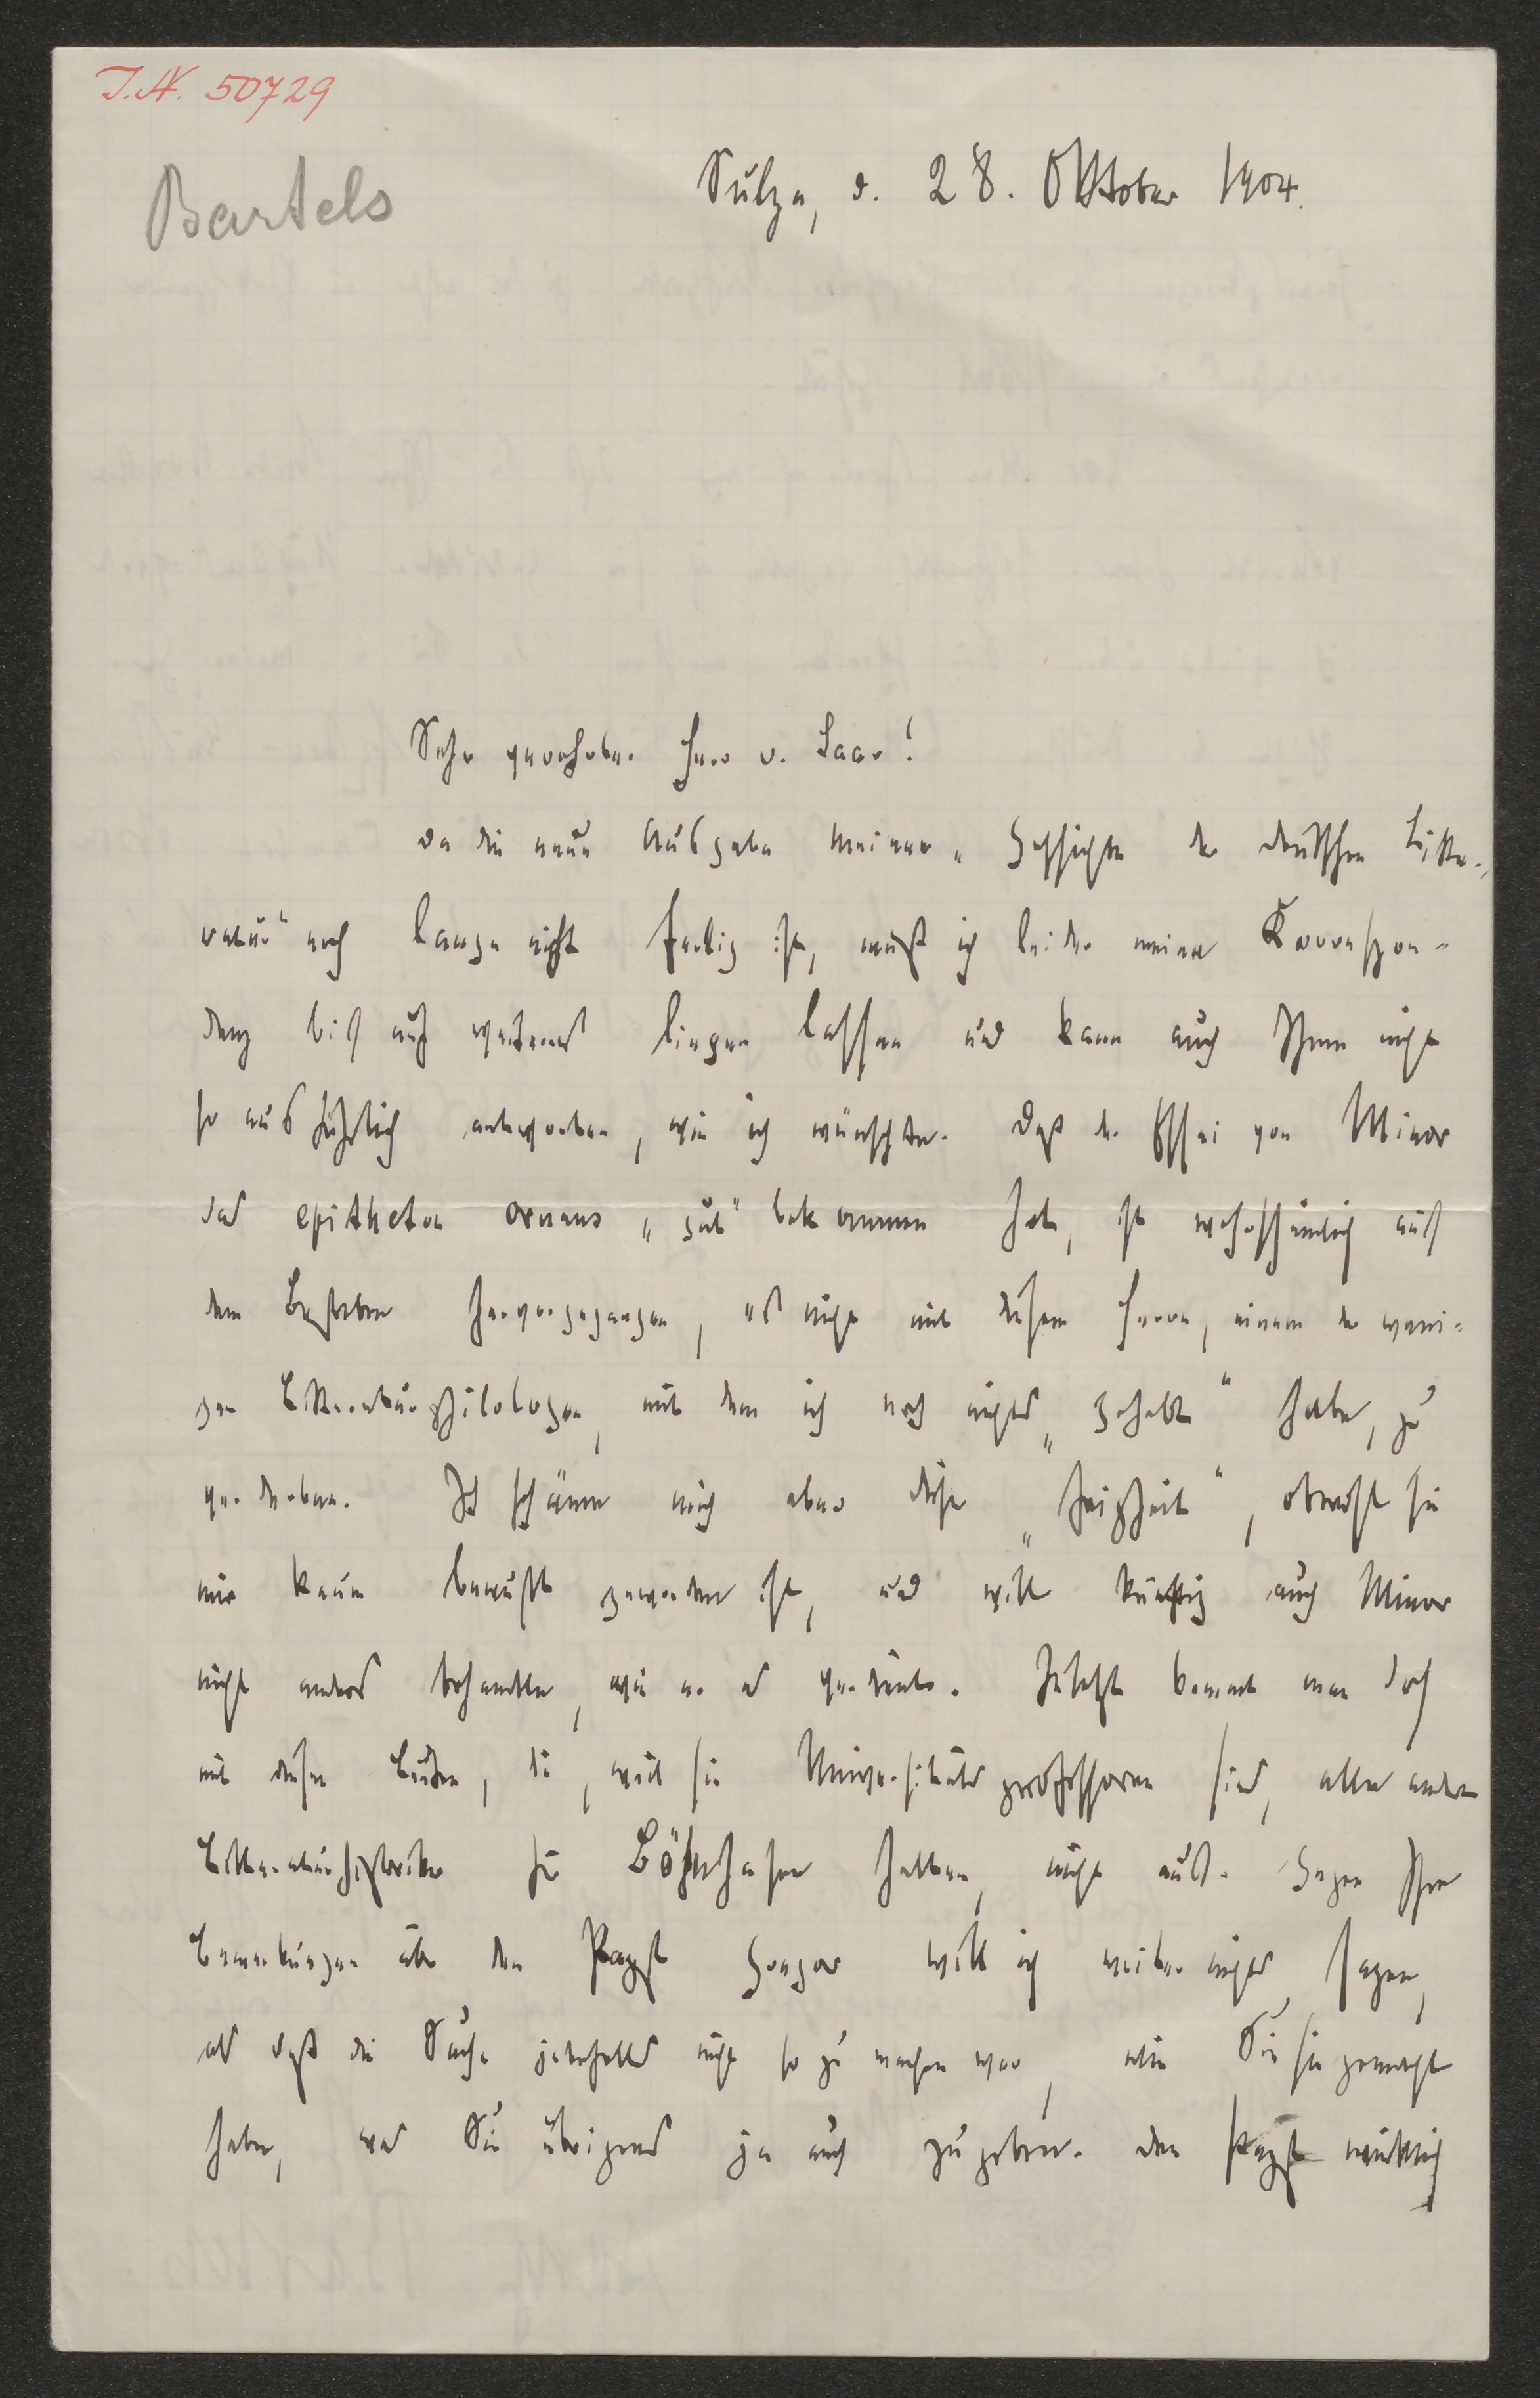 I.N. 50729
Bartels
Sulza, d. 28. Oktober 1904.
Sehr geehrter Herr v. Saar!
da die neue Ausgabe meiner „Geschichte der deutschen Litte-
ratur“ noch lange nicht fertig ist, muß ich leider meine Korrespon-
denz bis auf weiteres liegen lassen und kann auch Ihnen nicht
so ausführlich antworten, wie ich wünschte. Daß der Essai von Minor
das epitheton ornans „gut“ bekommen hat, ist wahrscheinlich aus
dem Bestreben hervorgegangen, es nicht mit diesem Herrn, einem der weni-
gen Litteraturphilologen, mit dem ich noch nichts „gehabt“ habe, zu
verderben. Ich schäme mich aber dieser „Feigheit“, obwohl sie
mir kaum bewußt geworden ist, und will künftig auch Minor
nicht anders behandeln, wie er es verdient. Zuletzt kommt man doch
mit diesen Leuten, die, weil sie Universitätsprofessoren sind, alle andern
Litteraturhistoriker für Böhnhasen halten, nicht aus. Gegen Ihre
Bemerkungen über den Papst Gregor will ich weiter nichts sagen,
als daß die Sache jedenfalls nicht so zu machen war, wie Sie sie gemacht
haben, was Sie übrigens ja auch zugeben. Den Papst wirklich